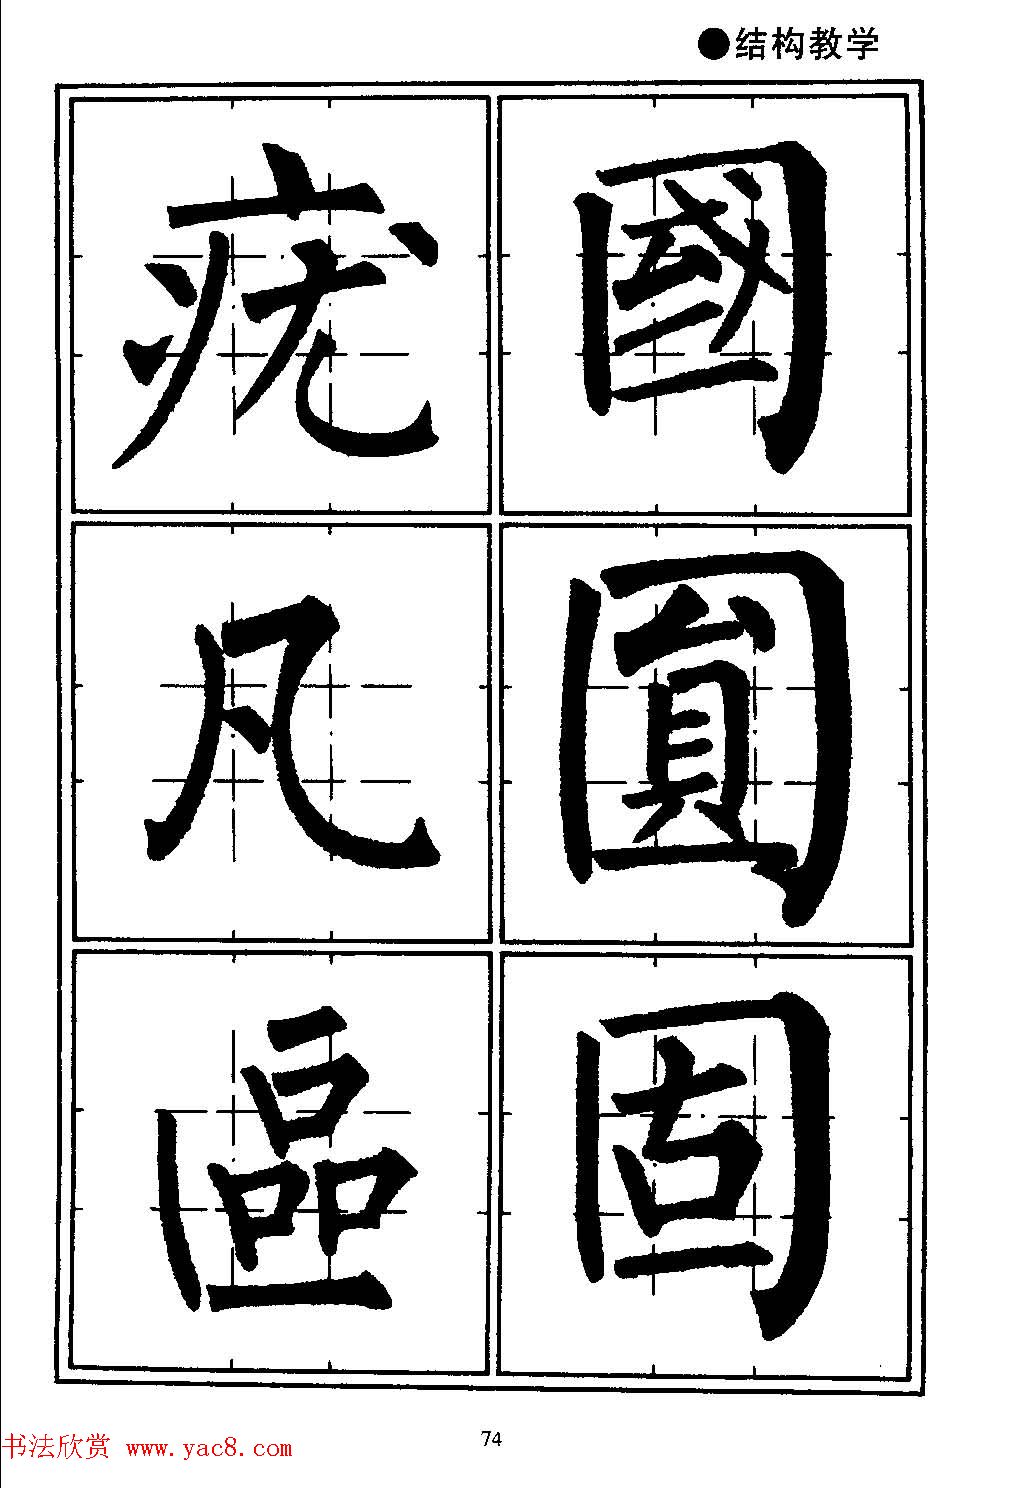 ●结构教学
國圓固
疣凡區
74
书法欣赏 www.yac8.com